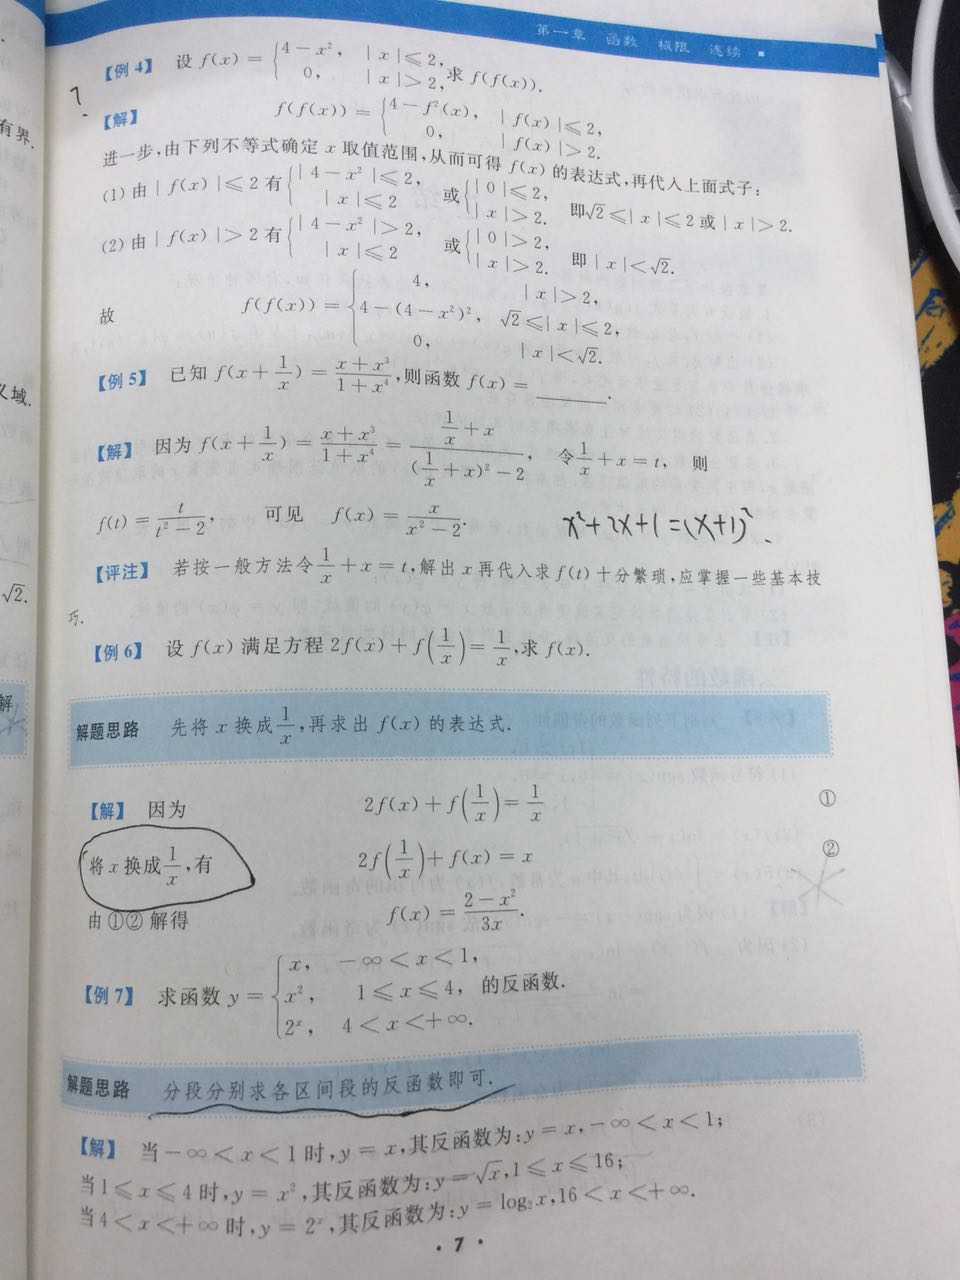 第一章 函数 极限 连续
【例4】 设 f(x) = { 4 − x², | x | ⩽ 2, 0, | x | > 2, 求 f(f(x)).
?
有界.
【解】 f(f(x)) = { 4 − f²(x), | f(x) | ⩽ 2, 0, | f(x) | > 2.
进一步,由下列不等式确定 x 取值范围,从而可得 f(x) 的表达式,再代入上面式子:
(1) 由 | f(x) | ⩽ 2 有 { | 4 − x² | ⩽ 2, | x | ⩽ 2 或 { | 0 | ⩽ 2, | x | > 2. 即 √2 ⩽ | x | ⩽ 2 或 | x | > 2.
(2) 由 | f(x) | > 2 有 { | 4 − x² | > 2, | x | ⩽ 2 或 { | 0 | > 2, | x | > 2. 即 | x | < √2.
故 f(f(x)) = { 4, | x | > 2, 4 − (4 − x²)², √2 ⩽ | x | ⩽ 2, 0, | x | < √2.
义域.
【例5】 已知 f(x + 1/x) = (x + x³)/(1 + x⁴), 则函数 f(x) = ______.
【解】 因为 f(x + 1/x) = (x + x³)/(1 + x⁴) = (1/x + x)/((1/x + x)² − 2), 令 1/x + x = t, 则
f(t) = t/(t² − 2), 可见 f(x) = x/(x² − 2).
x²+2x+1=(x+1)²、
【评注】 若按一般方法令 1/x + x = t, 解出 x 再代入求 f(t) 十分繁琐,应掌握一些基本技
巧.
√2.
【例6】 设 f(x) 满足方程 2f(x) + f(1/x) = 1/x, 求 f(x).
解
解题思路 先将 x 换成 1/x, 再求出 f(x) 的表达式.
【解】 因为 2f(x) + f(1/x) = 1/x ①
将 x 换成 1/x, 有 2f(1/x) + f(x) = x ②
由①②解得 f(x) = (2 − x²)/3x.
【例7】 求函数 y = { x, −∞ < x < 1, x², 1 ⩽ x ⩽ 4, 2ˣ, 4 < x < +∞. 的反函数.
解题思路 分段分别求各区间段的反函数即可.
【解】 当 −∞ < x < 1 时, y = x, 其反函数为: y = x, −∞ < x < 1;
当 1 ⩽ x ⩽ 4 时, y = x², 其反函数为: y = √x, 1 ⩽ x ⩽ 16;
当 4 < x < +∞ 时, y = 2ˣ, 其反函数为: y = log₂x, 16 < x < +∞.
· 7 ·